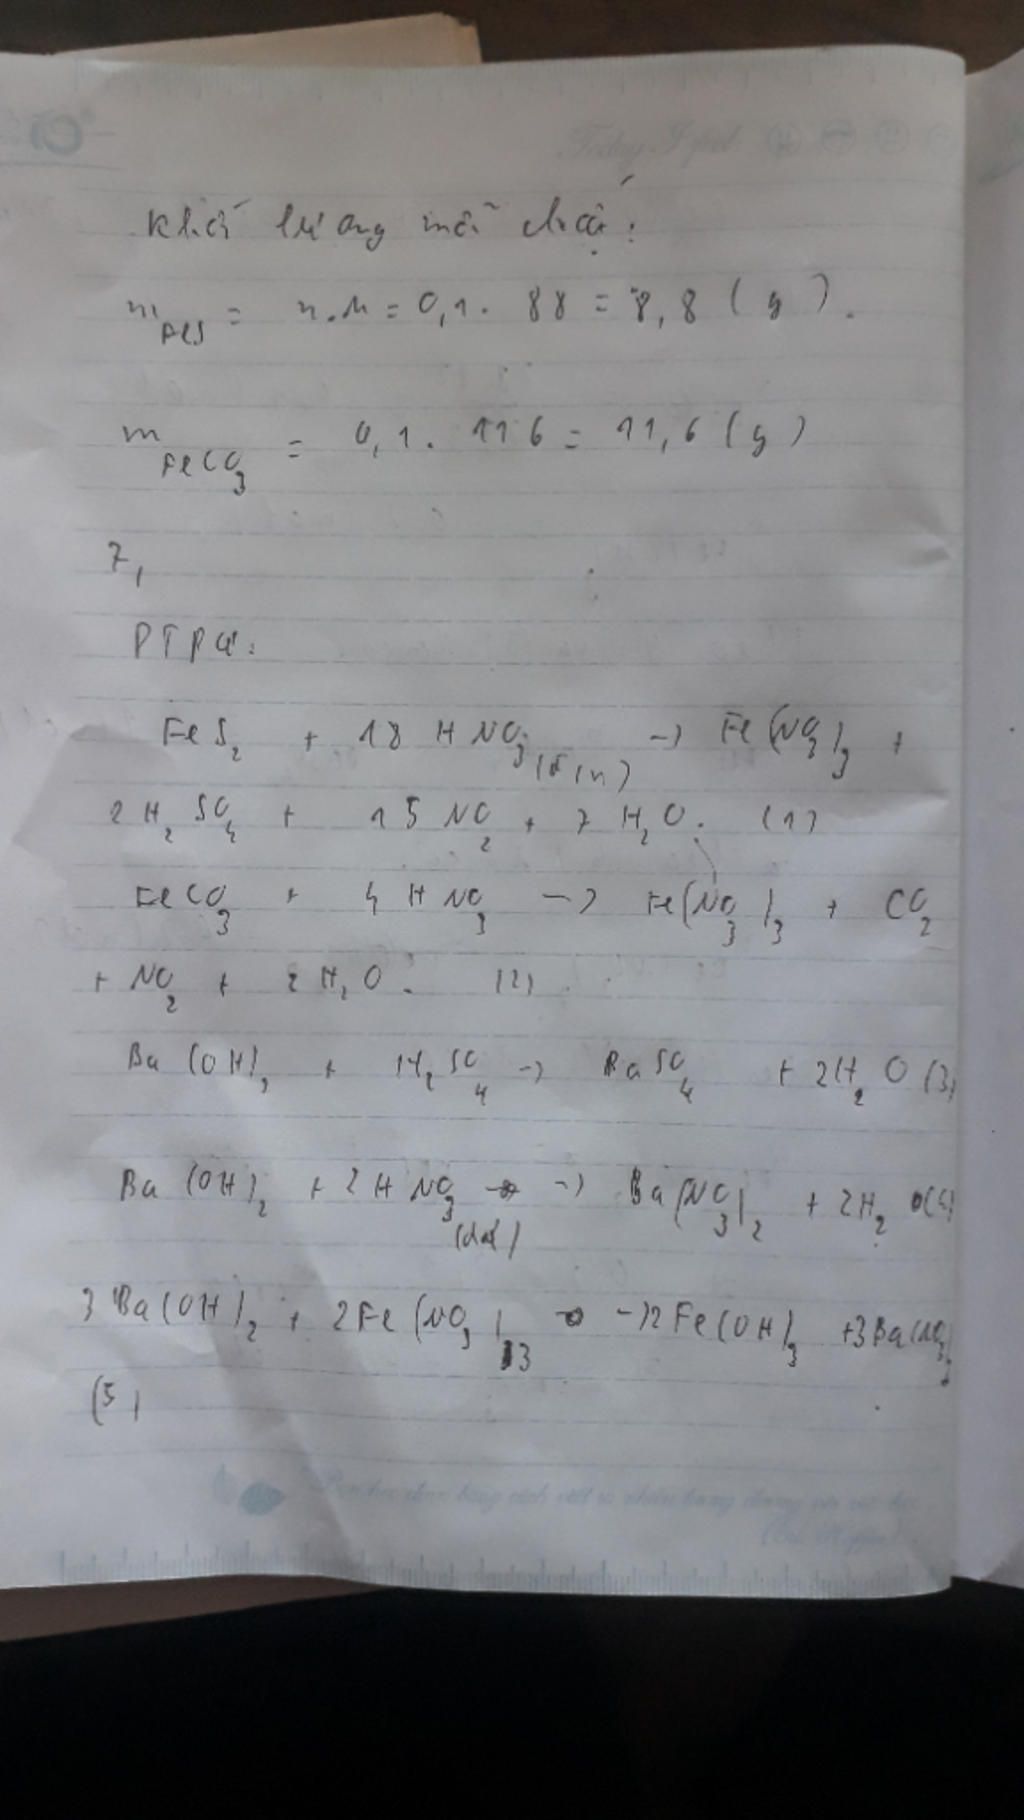 Today I feel
Khối lượng mỗi chất:
m FeS = n.M = 0,1. 88 = 8,8 (g).
m FeCO3 = 0,1. 116 = 11,6 (g)
7,
PTPƯ:
FeS2 + 18 HNO3 (đ,n) -> Fe(NO3)3 +
2H2SO4 + 15 NO2 + 7 H2O. (1)
FeCO3 + 4 HNO3 -> Fe(NO3)3 + CO2
+ NO2 + 2 H2O. (2).
Ba(OH)2 + H2SO4 -> BaSO4 + 2H2O (3)
Ba(OH)2 + 2HNO3 (dư) -> Ba(NO3)2 + 2H2O (4)
3Ba(OH)2 + 2Fe(NO3)3 -> 2Fe(OH)3 + 3Ba(NO3)2
(5)